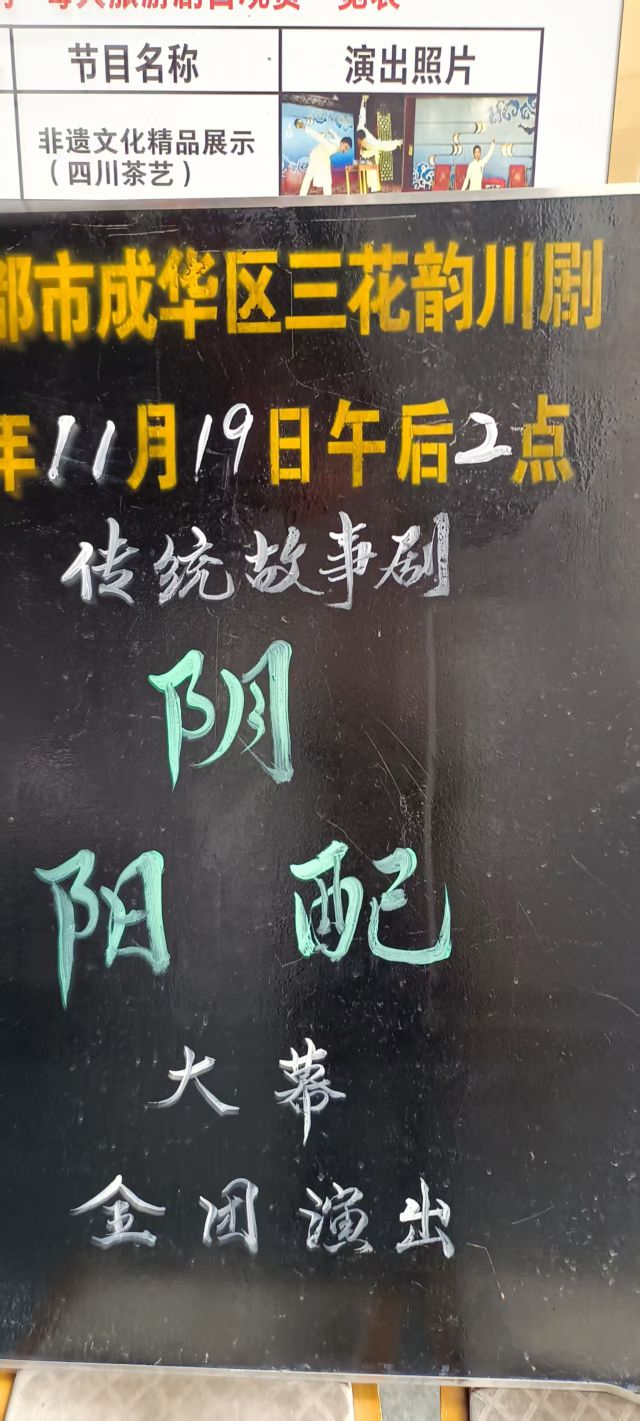 节目名称 演出照片
非遗文化精品展示
（四川茶艺）
都市成华区三花韵川剧
年11月19日午后2点
传统故事剧
阴
阳 配
大幕
全团演出